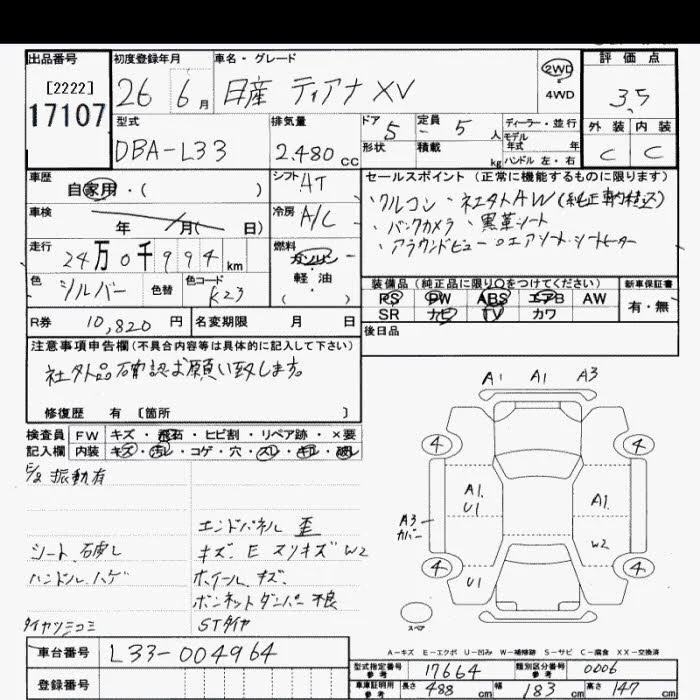 出品番号
[2222]
17107
初度登録年月
26 6月
車名・グレード
日産 ティアナ XV
2WD
4WD
評価点
3.5
型式
DBA-L33
排気量
2.480 cc
ドア 5
形状
定員 5 人
積載 kg
ディーラー・並行
モデル
年式 年
ハンドル 左・右
外装 内装
C C
車歴
自家用・( )
シフト AT
セールスポイント (正常に機能するものに限ります)
・クルコン ・社外AW
・バックカメラ ・黒革シート
・アラウンドビュー ・エアシート・シートヒーター
車検 年 月( 日)
冷房 A/C
走行
24万0千994 km
燃料
ガソリン
軽油
( )
色 シルバー
色替
色コード K23
装備品 (純正品に限り○をつけてください) 新車保証書
PS PW ABS エアB AW
SR ナビ TV カワ
有・無
R券 10,820 円
名変期限 月 日
後日品
注意事項申告欄(不具合内容等は具体的に記入して下さい)
社外品石確認お願い致します。
修復歴 有 [箇所 ]
検査員 FW キズ・飛石・ヒビ割・リペア跡・×要
記入欄 内装 キズ・汚レ・コゲ・穴・スレ・キレ・破レ
E/g 振動有
エンドパネル 歪
シート 石虜し
キズ、E スリキズ W2
ハンドル ハゲ
ホイール キズ、
ボンネットダンパー 不良
タイヤツミコミ
STタイヤ
A1 A1 A3
4 4
A1.
U1
A1.
A3
カバー
W2
4 4
U1
スペア
A-キズ E-エクボ U-凹み W-補修跡 S-サビ C-腐食 XX-交換済
車台番号 L33-004964
登録番号
型式指定番号 参考 17664
類別区分番号 参考 0006
車庫証明用 参考 長さ 488 cm 幅 183 cm 高さ 147 cm